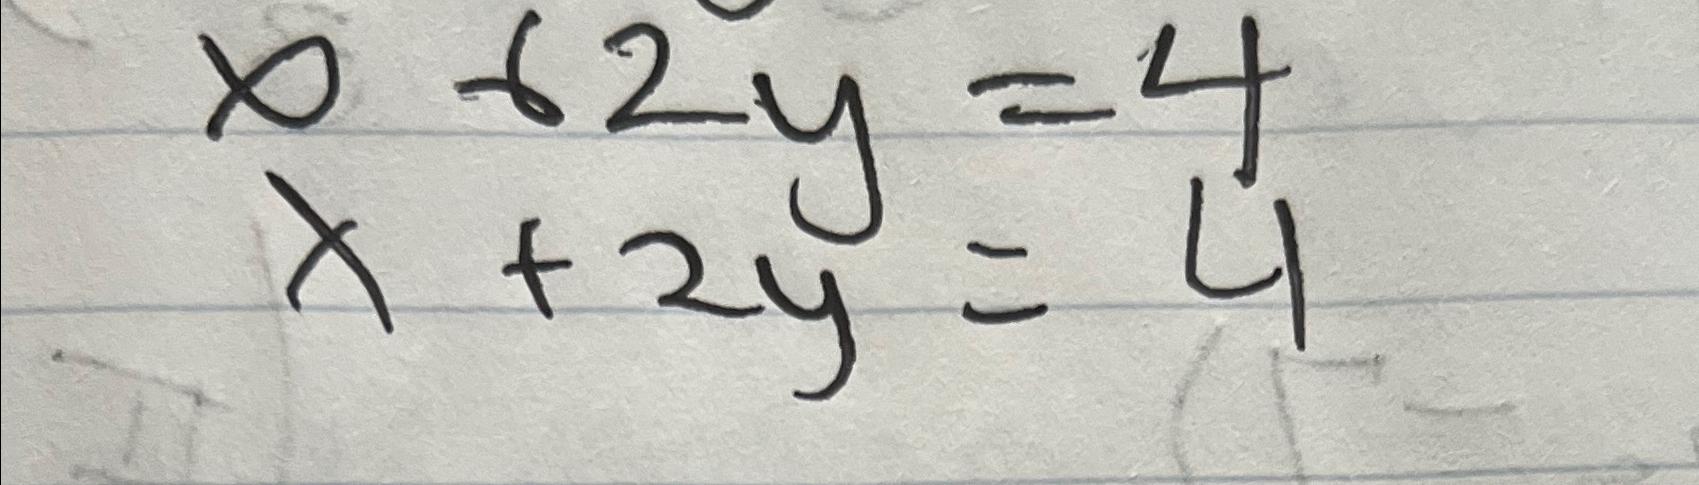 x + 2y = 4
x + 2y = 4